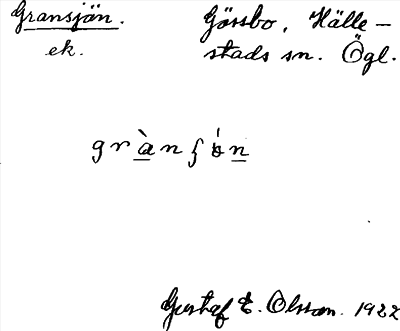 Gransjön. Gössbo, Hälle-
ek. stads sn. Ögl.
Gustaf E. Olsson. 1922